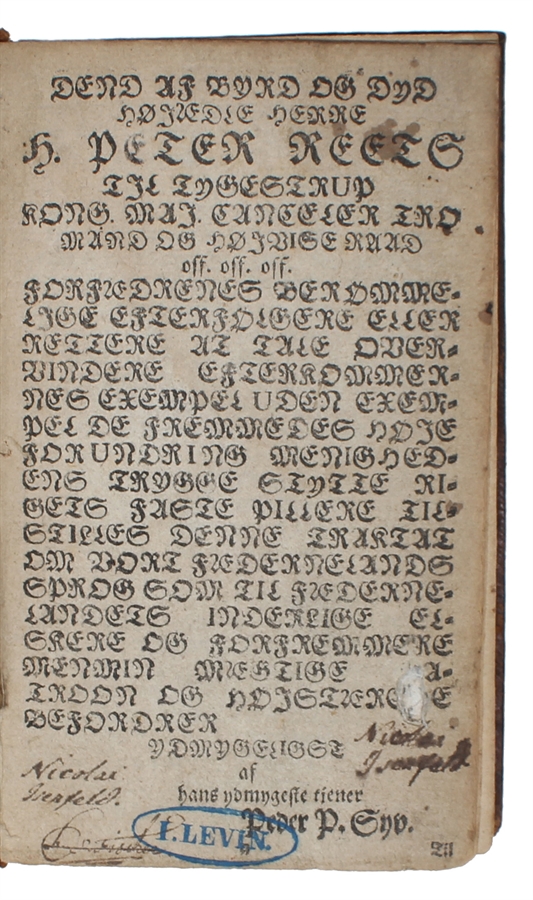 DEND AF BYRD OG DYD
HØJÆDLE HERRE
H. PETER REETS
TIL TYGESTRUP
KONG. MAJ. CANCELER TRO
MAND OG HØJVISE RAAD
off. off. off.
FORFÆDRENES BERØMME-
LIGE EFTERFØLGERE ELLER
RETTERE AT TALE OVER-
VINDERE EFTERKOMMER-
NES EXEMPEL UDEN EXEM-
PEL DE FREMMEDES HØJE
FORUNDRING MENIGHED-
ENS TRYGGE STYTTE RI-
GETS FASTE PILLERE TIL-
STILLES DENNE TRAKTAT
OM VORT FÆDERNELANDS
SPROG SOM TIL FÆDERNE-
LANDETS INDERLIGE EL-
SKERE OG FORFREMMERE
MENMIN MÆGTIGE A-
TROON OG HØJSTÆRE E
BEFORDRER
YDMYGELIGST
af
hans ydmygeste tiener
Peder P. Syv.
Til
Nicolai
Isenfeldt
Nicolai
Isenfeld.
I. LEVIN.